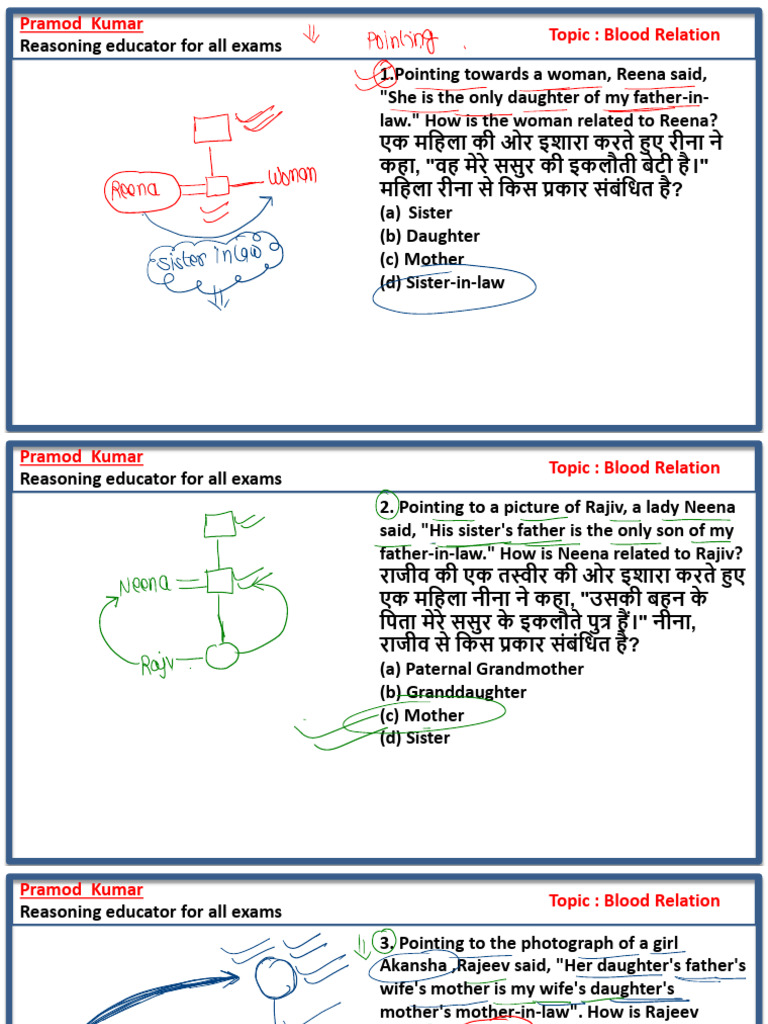 Pramod Kumar
Reasoning educator for all exams
Pointing
Topic : Blood Relation
1.Pointing towards a woman, Reena said,
"She is the only daughter of my father-in-
law." How is the woman related to Reena?
एक महिला की ओर इशारा करते हुए रीना ने
कहा, "वह मेरे ससुर की इकलौती बेटी है।"
महिला रीना से किस प्रकार संबंधित है?
(a) Sister
(b) Daughter
(c) Mother
(d) Sister-in-law
Reena
Woman
sister in law
Pramod Kumar
Reasoning educator for all exams
Topic : Blood Relation
2. Pointing to a picture of Rajiv, a lady Neena
said, "His sister's father is the only son of my
father-in-law." How is Neena related to Rajiv?
राजीव की एक तस्वीर की ओर इशारा करते हुए
एक महिला नीना ने कहा, "उसकी बहन के
पिता मेरे ससुर के इकलौते पुत्र हैं।" नीना,
राजीव से किस प्रकार संबंधित है?
(a) Paternal Grandmother
(b) Granddaughter
(c) Mother
(d) Sister
Neena
Rajiv
Pramod Kumar
Reasoning educator for all exams
Topic : Blood Relation
3. Pointing to the photograph of a girl
Akansha ,Rajeev said, "Her daughter's father's
wife's mother is my wife's daughter's
mother's mother-in-law". How is Rajeev